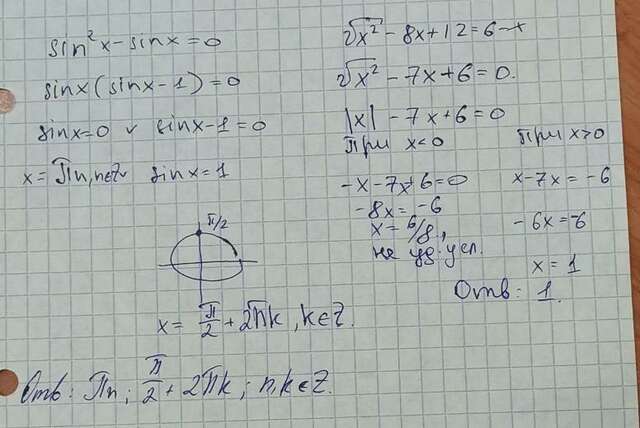 sin²x-sinx=0
sinx(sinx-1)=0
sinx=0 v sinx-1=0
x=πn, n∈Z v sinx=1
π/2
x= π/2 + 2πk, k∈Z.
Отв: πn; π/2 + 2πk; n,k∈Z.
√x² - 8x+12=6-x
√x² - 7x+6=0.
|x| - 7x+6=0
При x<0
При x>0
-x-7x+6=0
-8x=-6
x=6/8,
не уд. усл.
x-7x=-6
-6x=-6
x=1
Отв: 1.